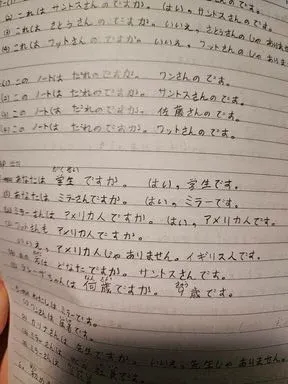 (2) これは サントスさんの ですか。 はい。サントスさんの
(3) これは さとうさんの ですか。 いいえ。さとうさんの じゃ ありま
(4) これは ワットさんの ですか。 いいえ。ワットさんの じゃ ありま
(1) この ノートは だれの ですか。 ワンさんの です。
(2) この ノートは だれの ですか。 サントスさんの です。
(3) この ノートは だれの ですか。 佐藤さんの です。
この ノートは だれの ですか。 ワットさんの です。
がくせい
あなたは 学生 ですか。 はい。学生です。
あなたは ミラーさんですか。 はい。ミラーです。
ミラーさんは アメリカ人ですか。 はい。アメリカ人です。
ワットさんも アメリカ人ですか。
いいえ、アメリカ人じゃ ありません。イギリス人です。
は どなたですか。 サントスさんです。
なんさい
テレーザちゃんは 何歳ですか。 9歳です。
わたしは ミラーです。
先生ですか。いいえ、先生じゃ ありません。